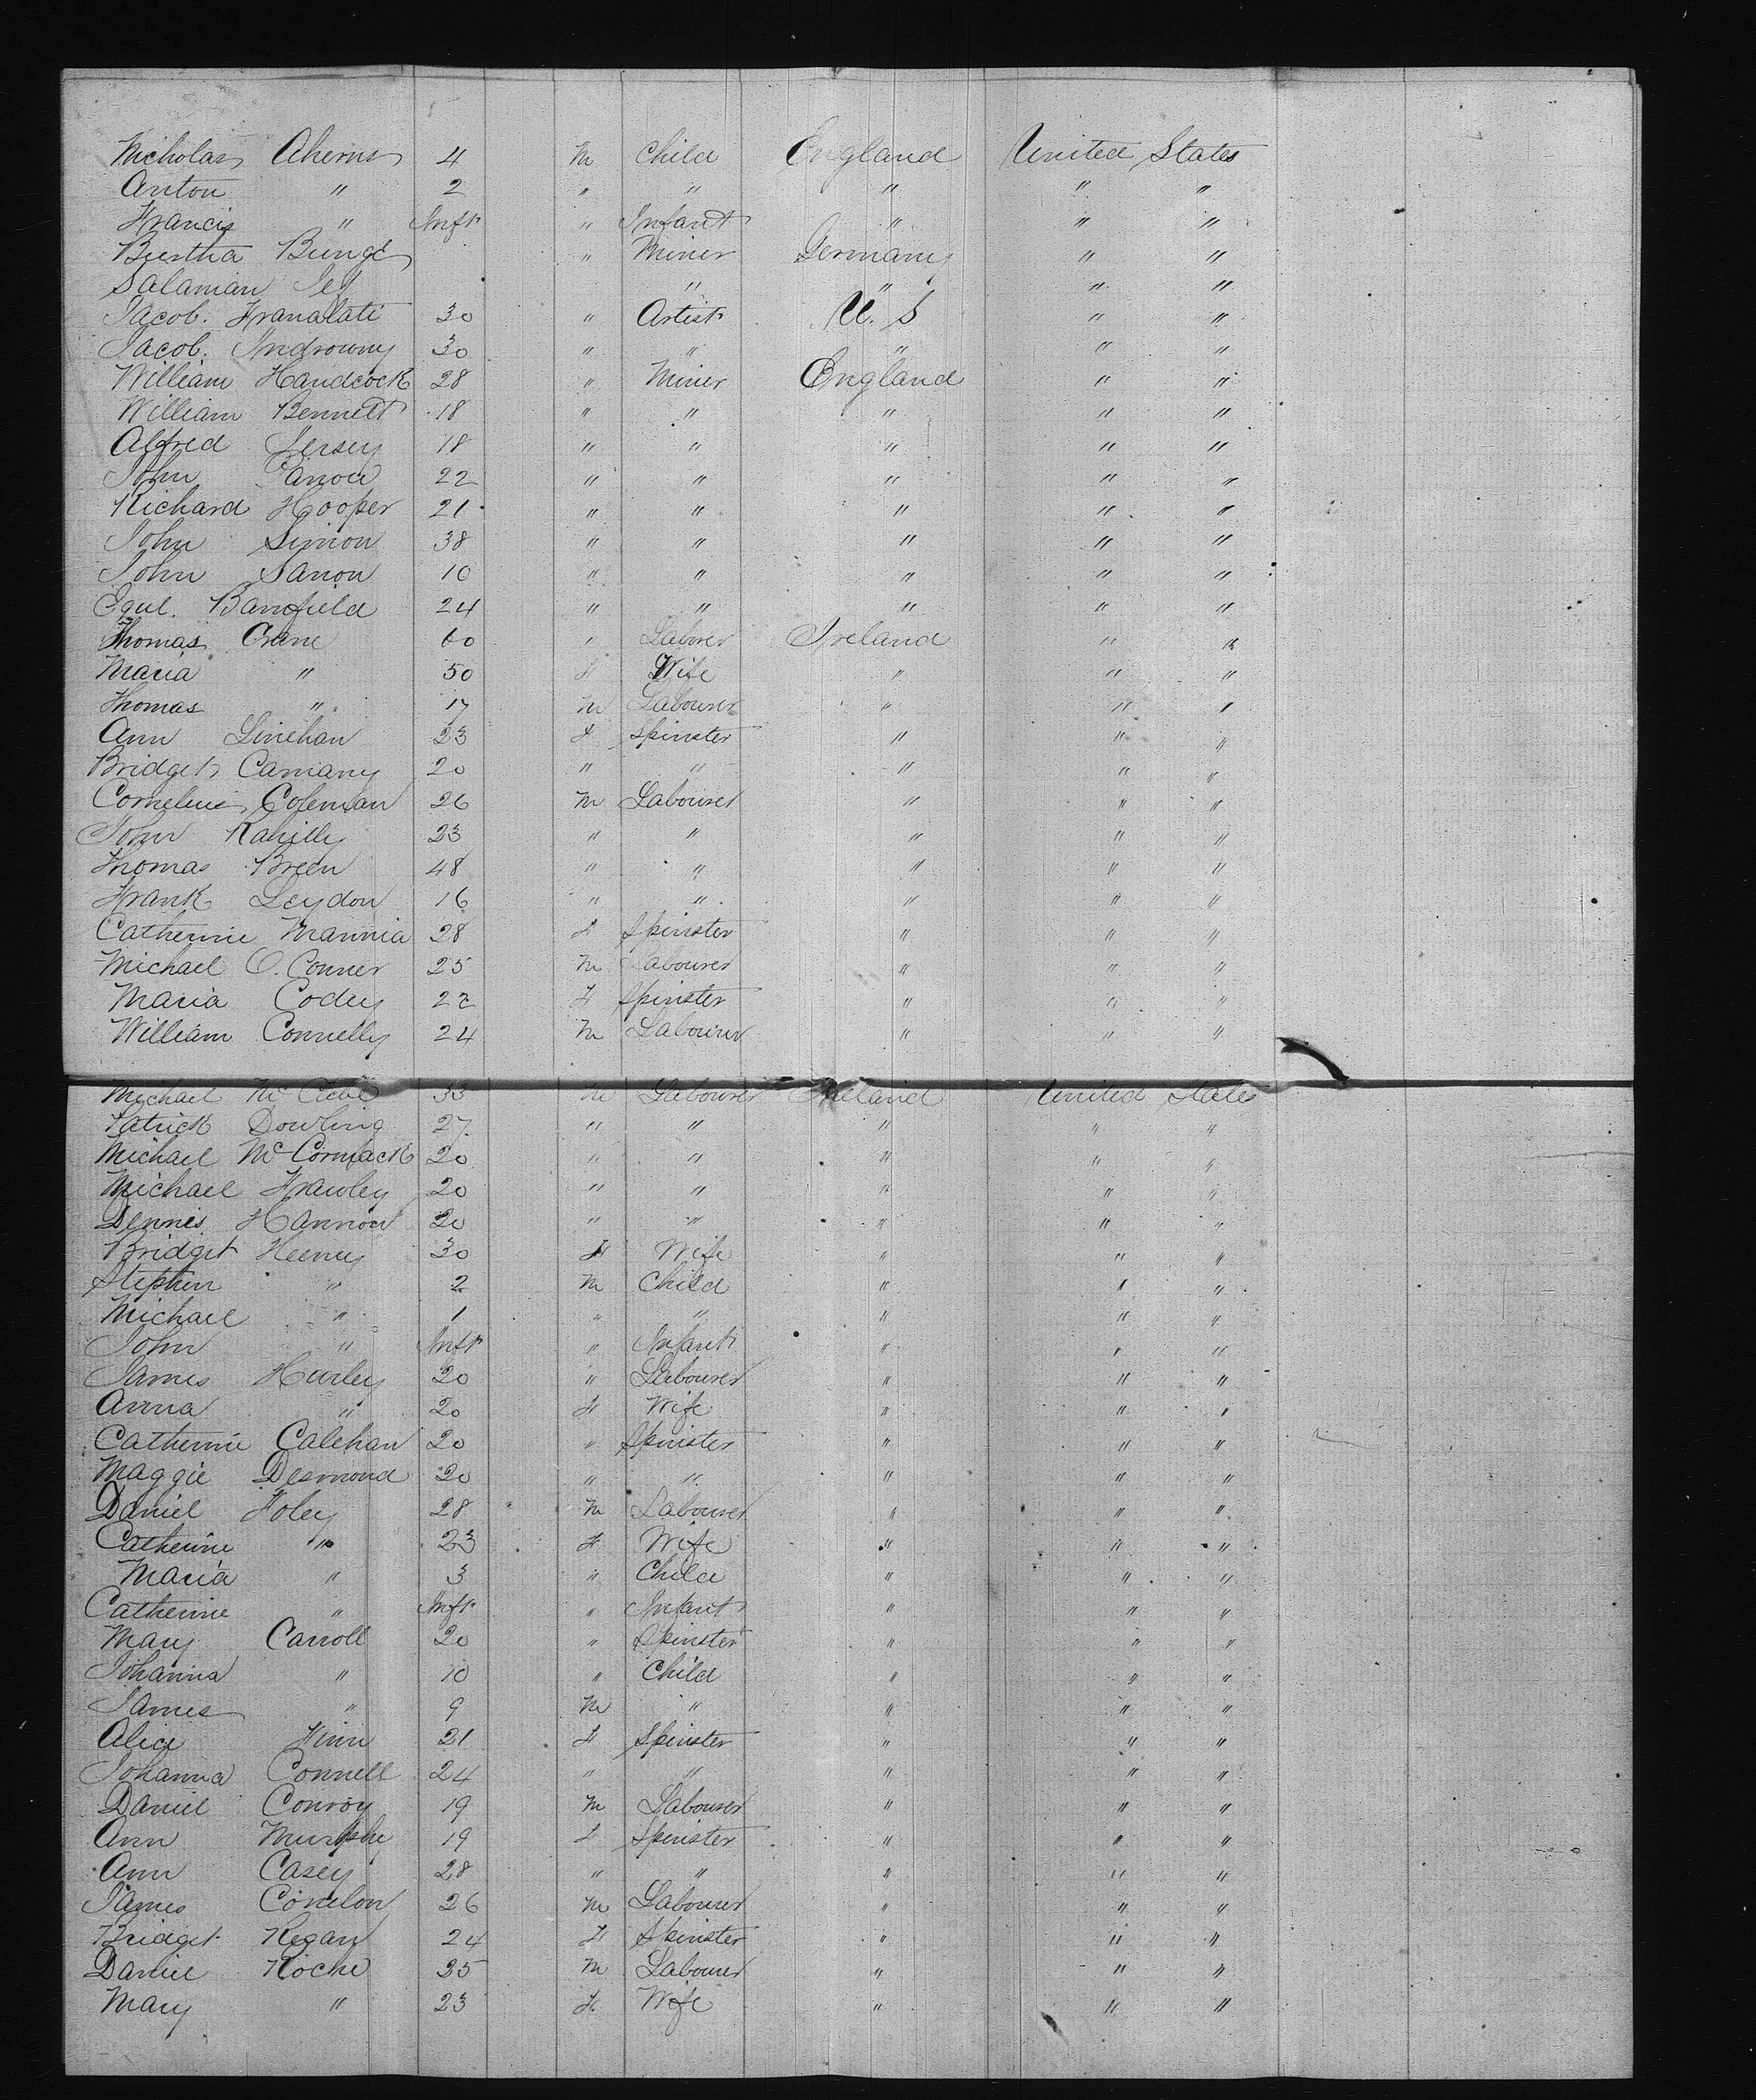 Nicholas Aherns 4 M Child England United States
Anton " 2 " " " " "
Francis " Inft " Infant " " "
Bertha Bunge " Miner Germany " "
Salaman " " " "
Jacob. 30 " Artist U. S " "
Jacob. 30 " " " " "
William Handcock 28 " Miner England " "
William Bennett 18 " " " " "
Alfred Jersey 18 " " " " "
John 22 " " " " "
Richard Hooper 21 " " " " "
John Simon 38 " " " " "
John Sanon 10 " " " " "
Banfield 24 " " " " "
Thomas Crane 60 " Labrer Ireland " "
Maria " 50 F Wife " " "
Thomas " 17 M Labourer " " "
Ann Linehan 23 F Spinster " " "
Bridget Camany 20 " " " " "
Cornelius Coleman 26 M Labourer " " "
John Rahilly 23 " " " " "
Thomas Breen 48 " " " " "
Frank Leydon 16 " " " " "
Catherine Mannia 28 F Spinster " " "
Michael O. Conner 25 M Labourer " " "
Maria Codey 22 F Spinster " " "
William Connelly 24 M Labourer " " "
Michael Mc Cabe 33 M Labourer Ireland United States
Patrick Dowling 27 " " " " "
Michael McCormack 20 " " " " "
Michael Frawley 20 " " " " "
Dennis Hannon 20 " " " " "
Bridget Heeney 30 F Wife " " "
Stephen " 2 M Child " " "
Michael " 1 " " " " "
John " Inft " Infant " " "
James Hurley 20 " Labourer " " "
Anna " 20 F Wife " " "
Catherine Calehan 20 " Spinster " " "
Maggie Desmond 20 " " " " "
Daniel Foley 28 M Labourer " " "
Catherine " 23 F Wife " " "
Maria " 3 " Child " " "
Catherine " Inft " Infant " " "
Mary Carroll 20 " Spinster " " "
Johanna " 10 " Child " " "
James " 9 M " " " "
Alice Finn 21 F Spinster " " "
Johanna Connell 24 " " " " "
Daniel Conroy 19 M Labourer " " "
Ann Murphy 19 F Spinster " " "
Ann Casey 28 " " " " "
James Conelon 26 M Labourer " " "
Bridget Regan 24 F Spinster " " "
Daniel Roche 35 M Labourer " " "
Mary " 23 F Wife " " "